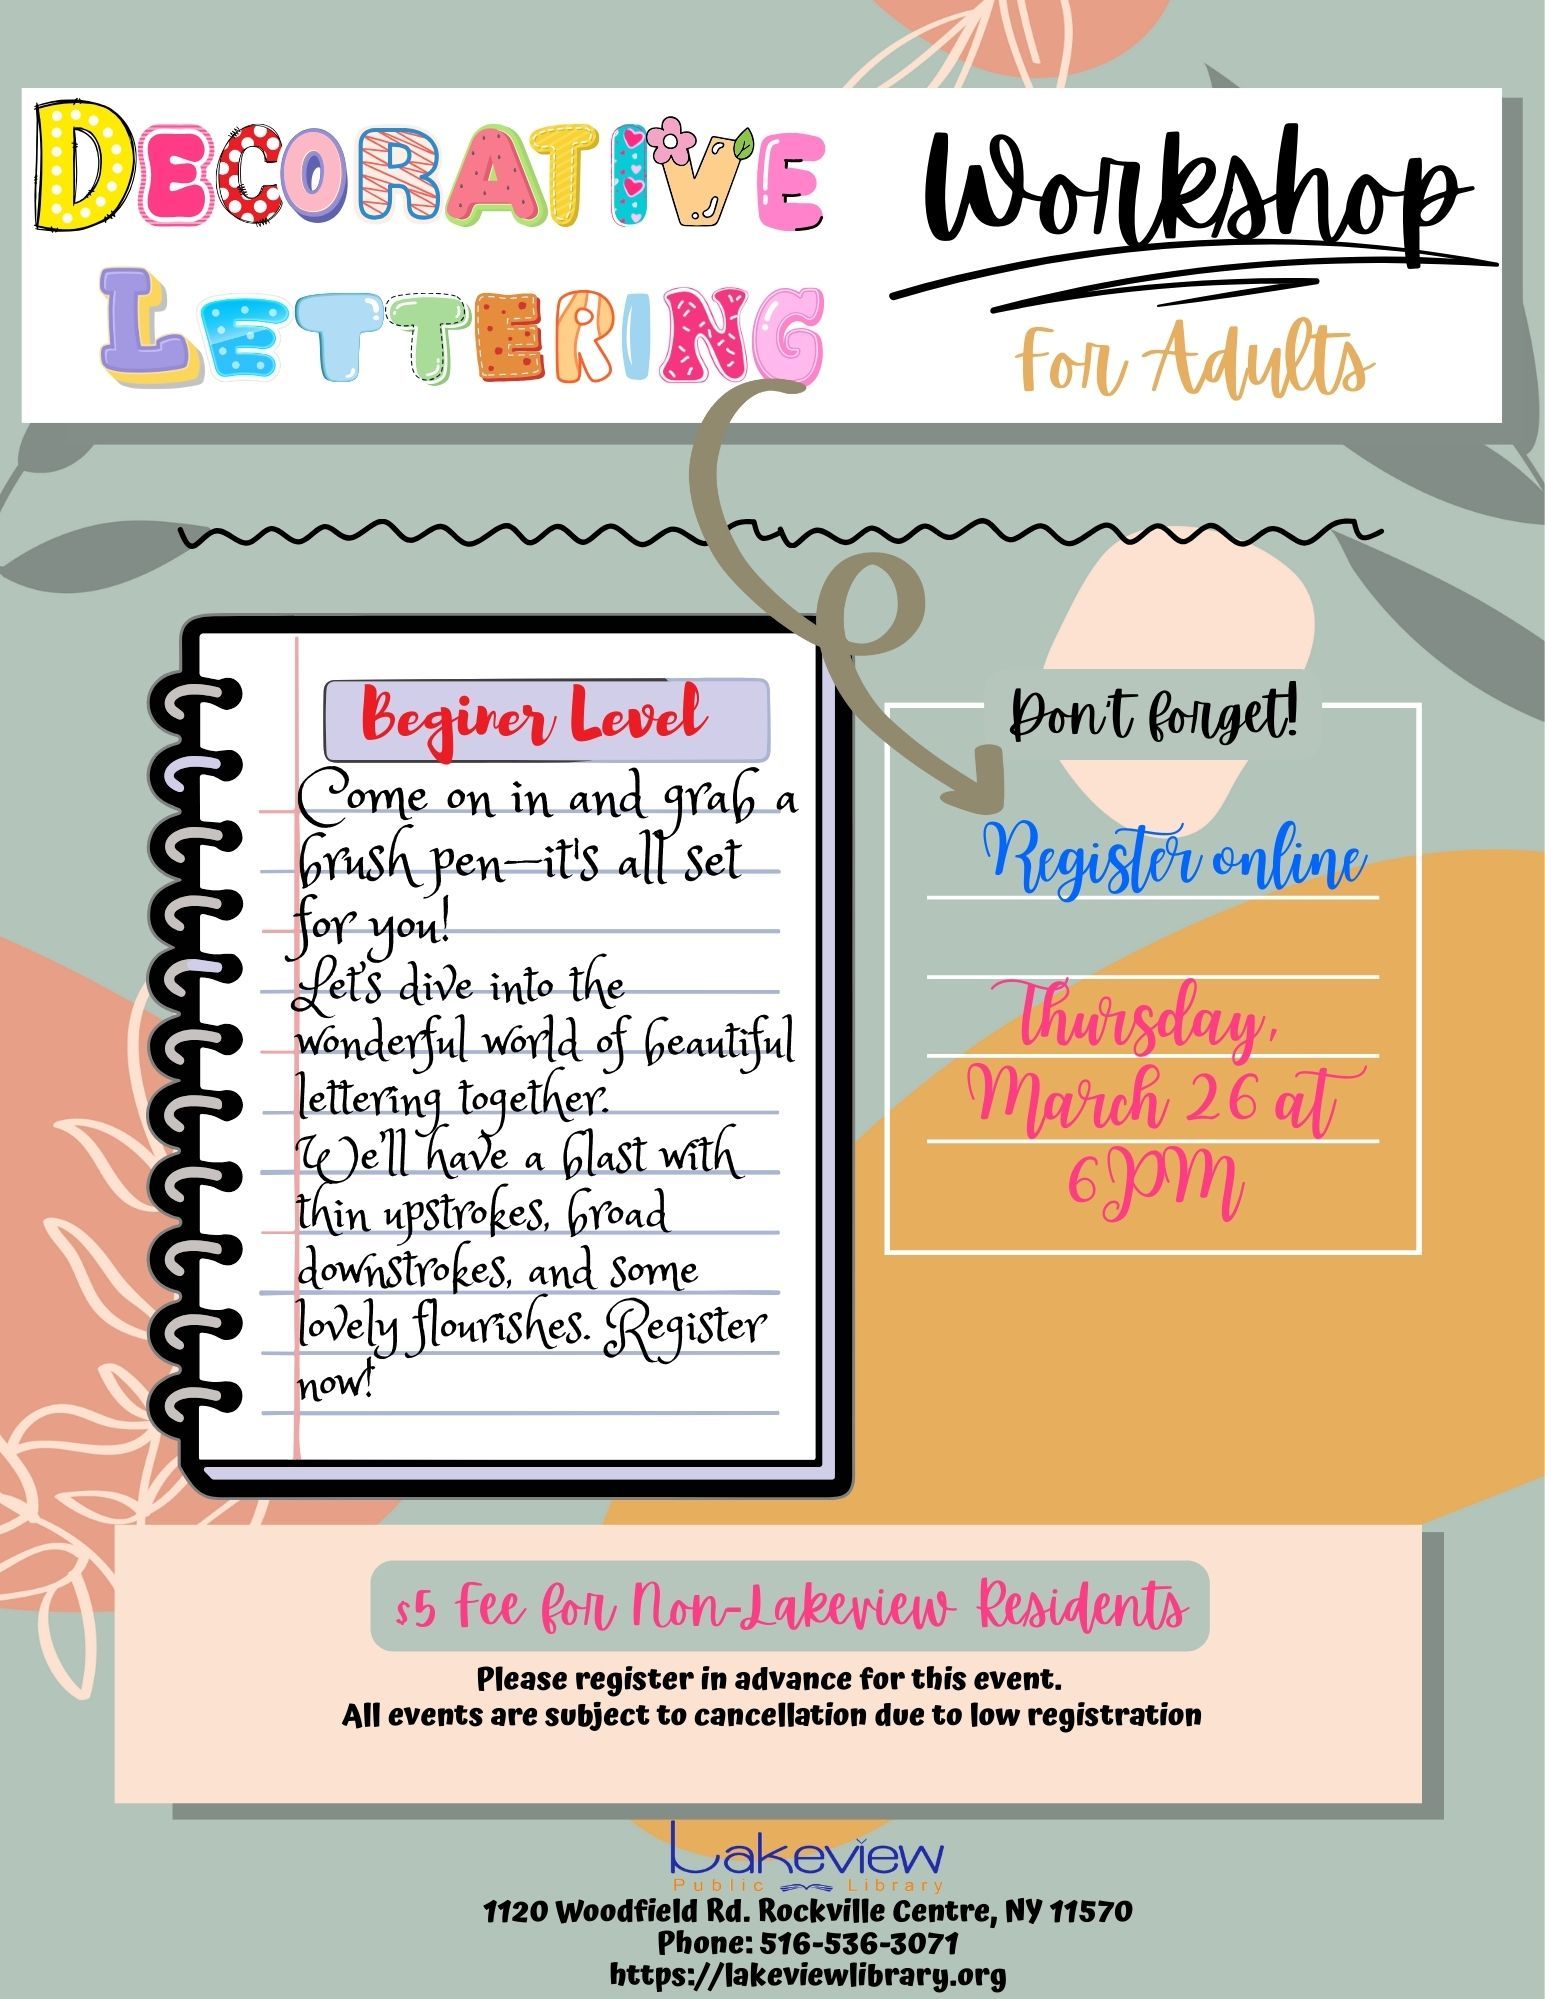 DECORATIVE
LETTERING
Workshop
For Adults
Beginer Level
Come on in and grab a
brush pen—it's all set
for you!
Let's dive into the
wonderful world of beautiful
lettering together.
We'll have a blast with
thin upstrokes, broad
downstrokes, and some
lovely flourishes. Register
now!
Don't forget!
Register online
Thursday,
March 26 at
6PM
$5 Fee for Non-Lakeview Residents
Please register in advance for this event.
All events are subject to cancellation due to low registration
Lakeview
Public Library
1120 Woodfield Rd. Rockville Centre, NY 11570
Phone: 516-536-3071
https://lakeviewlibrary.org